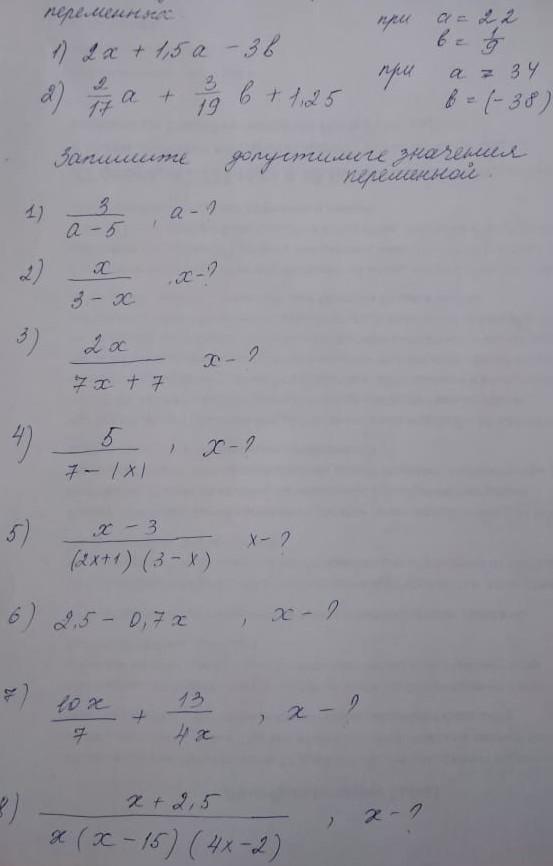 переменных. при a = 22
b = 1/9
1) 2x + 1,5a - 3b
при a = 34
2) 2/17 a + 3/19 b + 1,25 b = (-38)
Запишите допустимые значения
переменной.
1) 3/(a-5) , a-?
2) x/(3-x) , x-?
3) 2x/(7x+7) x-?
4) 5/(7-|x|) , x-?
5) (x-3)/((2x+1)(3-x)) x-?
6) 2,5 - 0,7x , x-?
7) 10x/7 + 13/4x , x-?
8) (x+2,5)/(x(x-15)(4x-2)) , x-?